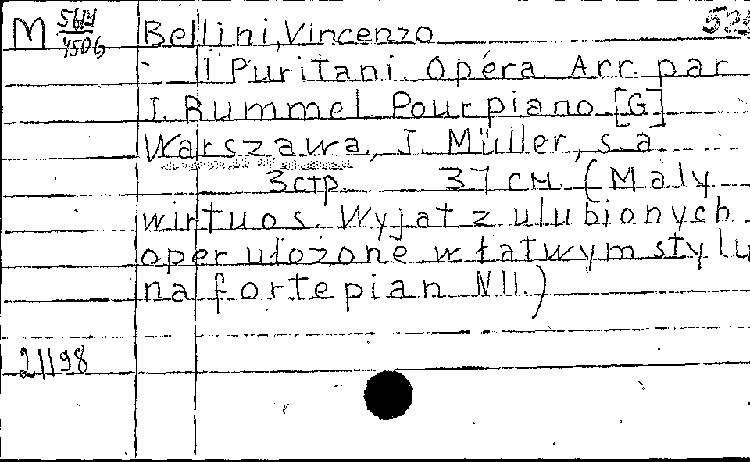 M 5614/4506 Bellini, Vincenzo
I Puritani. Opéra Arr. par
J. Rummel Pour piano [G]
Warszawa, J. Müller, s a
3 стр. 37 см (Maly
wirtuos. Wyjat z ulubionych
oper ułozone w łatwym stylu
na fortepian N11.)
21198